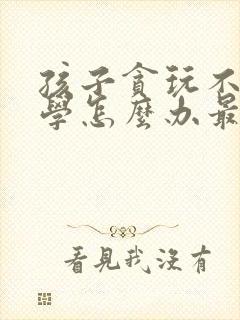 孩子貪玩不
學怎麼办最
看見我沒有